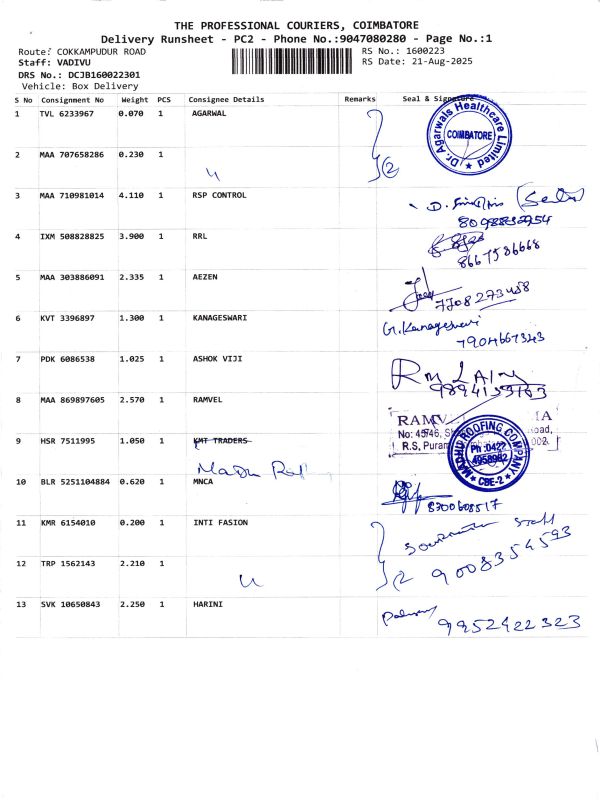 THE PROFESSIONAL COURIERS, COIMBATORE
Delivery Runsheet - PC2 - Phone No.:9047080280 - Page No.:1
Route: COKKAMPUDUR ROAD RS No.: 1600223
Staff: VADIVU RS Date: 21-Aug-2025
DRS No.: DCJB160022301
Vehicle: Box Delivery
S No Consignment No Weight PCS Consignee Details Remarks Seal & Signature
1 TVL 6233967 0.070 1 AGARWAL
Dr. Agarwals Healthcare Limited
COIMBATORE
2 MAA 707658286 0.230 1
2
3 MAA 710981014 4.110 1 RSP CONTROL
4 IXM 508828825 3.900 1 RRL
8667586668
5 MAA 303886091 2.335 1 AEZEN
7708273458
6 KVT 3396897 1.300 1 KANAGESWARI
G. Kanageswari
7904667343
7 PDK 6086538 1.025 1 ASHOK VIJI
9894153163
8 MAA 869897605 2.570 1 RAMVEL
RAMV
No: 45/46,
R.S. Puram
9 HSR 7511995 1.050 1 KMT TRADERS
MADHU ROOFING COMPANY
Ph :0422
4958982
CBE-2
10 BLR 5251104884 0.620 1 MNCA
8300608517
11 KMR 6154010 0.200 1 INTI FASION
9008354593
12 TRP 1562143 2.210 1
2
13 SVK 10650843 2.250 1 HARINI
9952422323